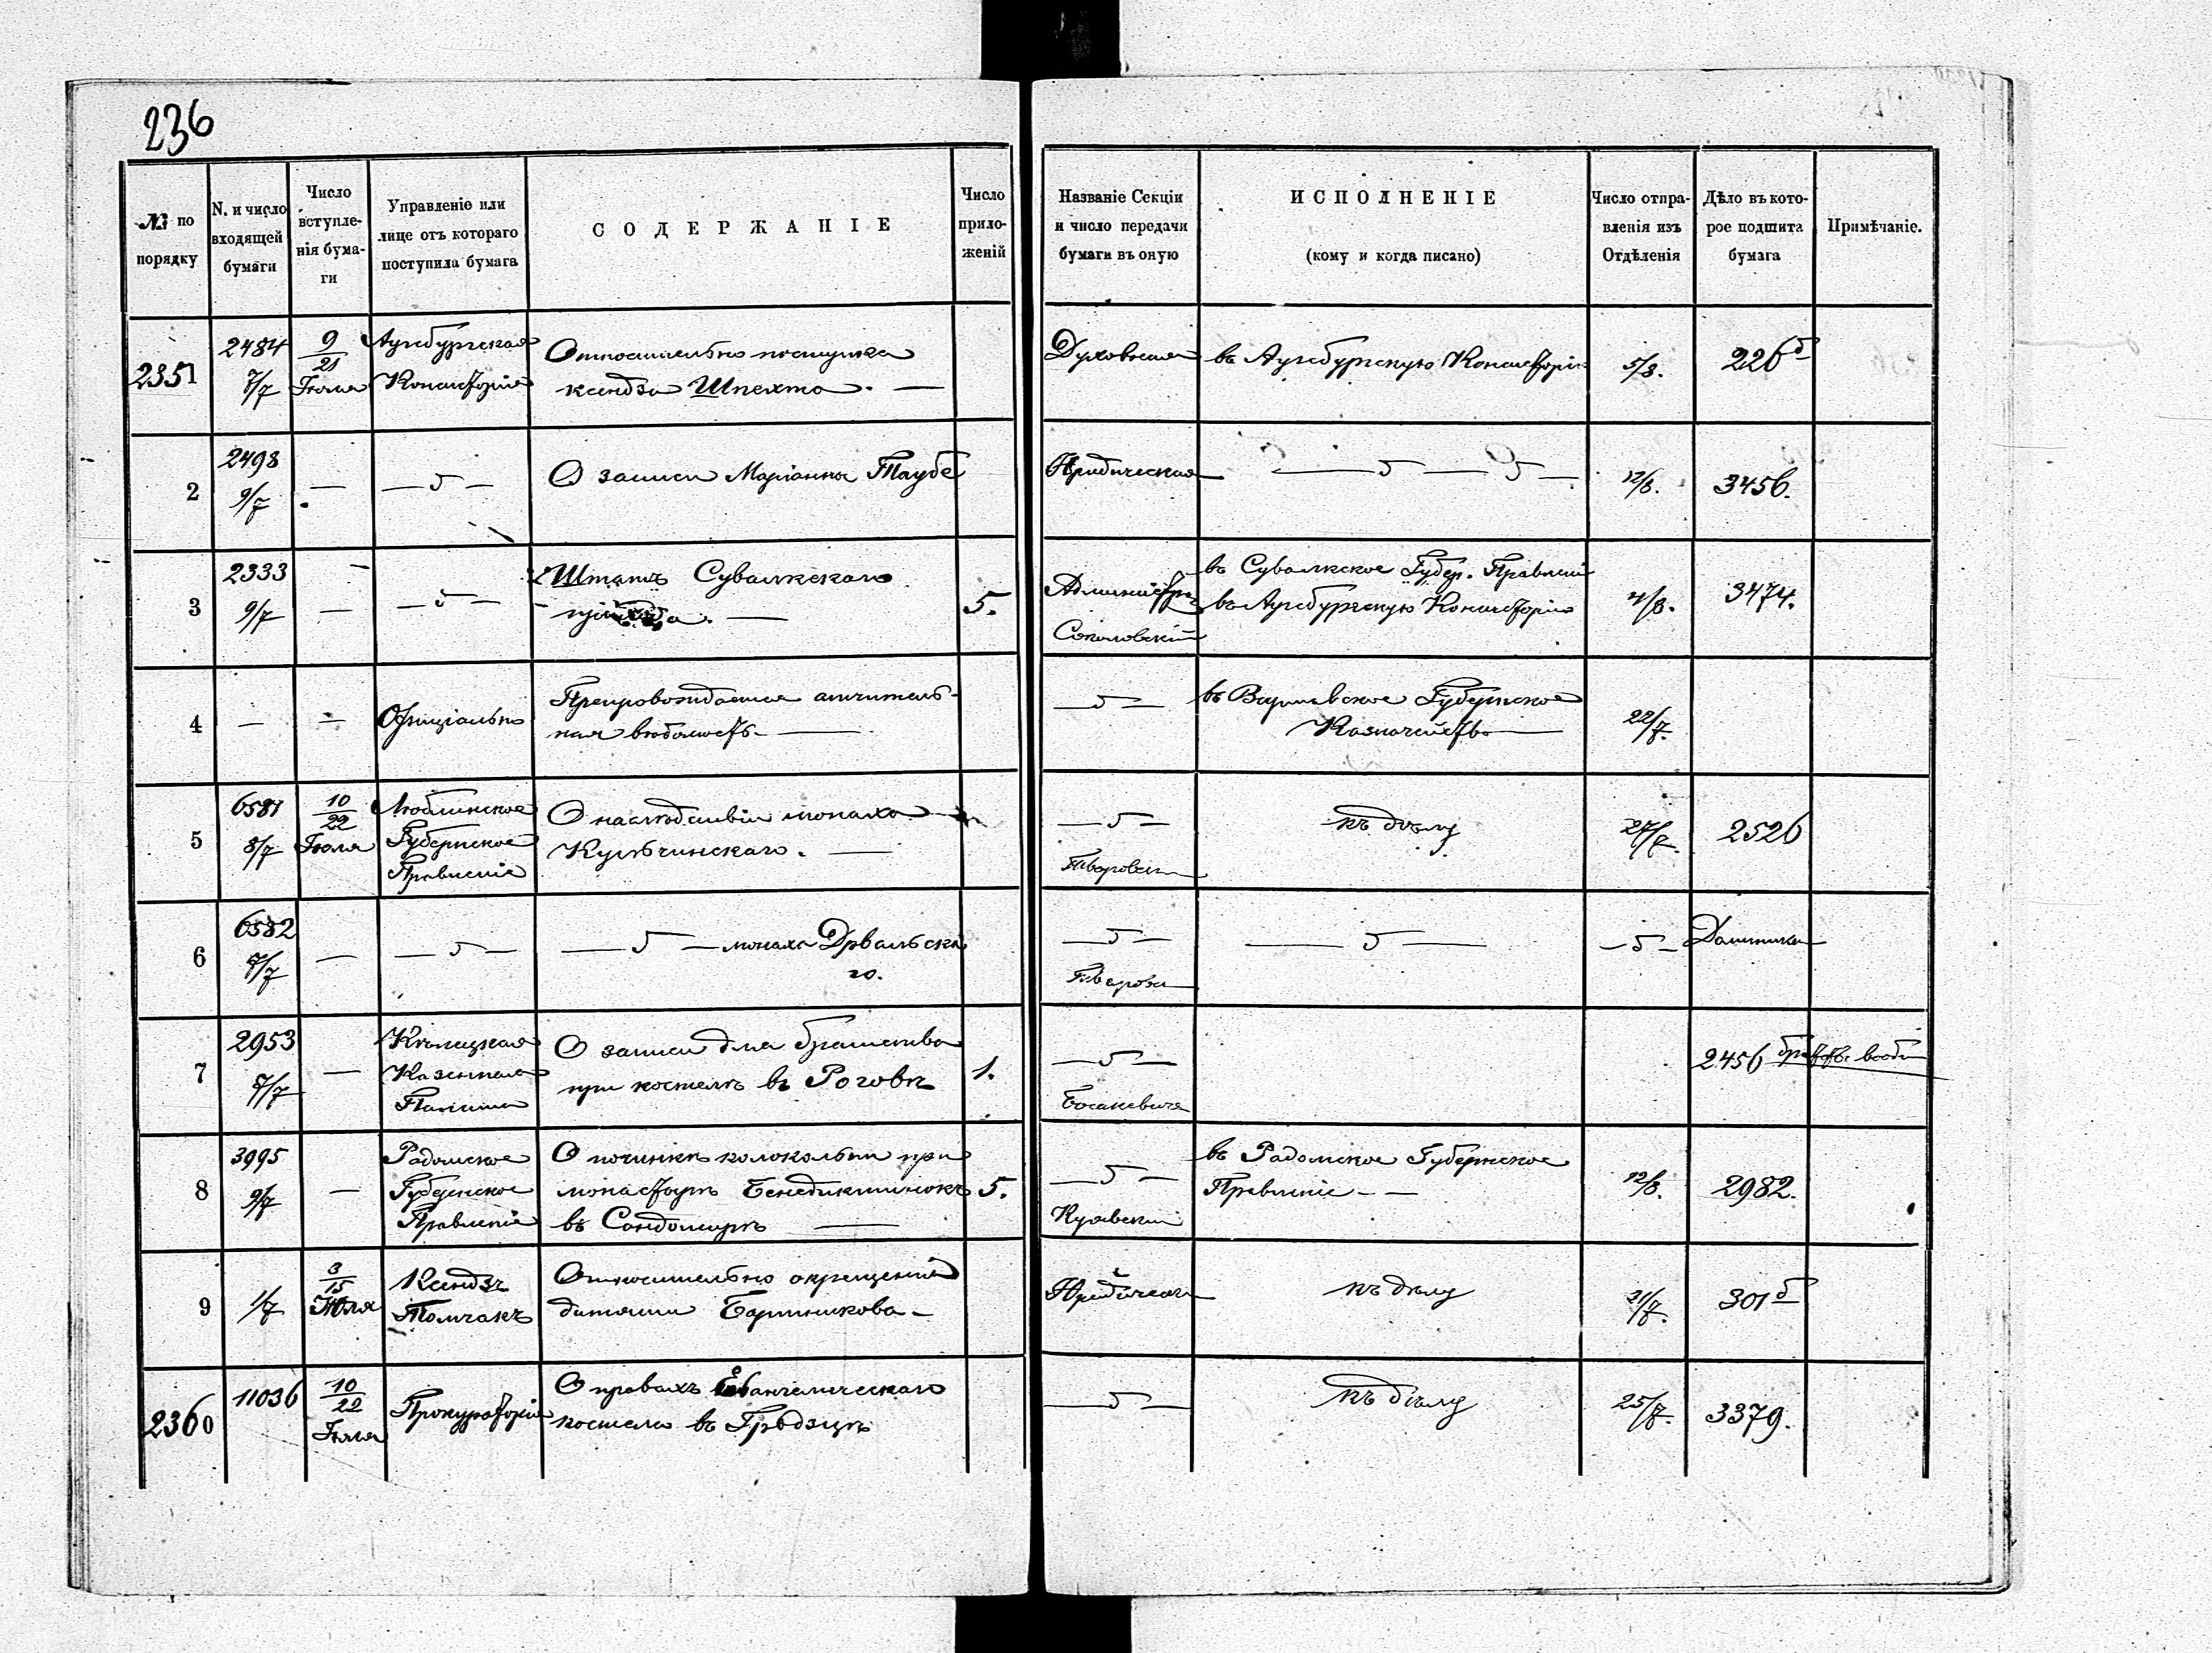 236
№ по порядку
N. и число входящей бумаги
Число вступленія бумаги
Управленіе или лице отъ котораго поступила бумага
СОДЕРЖАНІЕ
Число приложеній
Названіе Секціи и число передачи бумаги въ оную
ИСПОЛНЕНІЕ
(кому и когда писано)
Число отправленія изъ Отдѣленія
Дѣло въ которое подшита бумага
Примѣчаніе.
2351
2484
7/7
9/21
Іюля
Аугсбургская
Консисторія
Относительно поступка
ксендза Шпехта. —
Духовная
въ Аугсбургскую Консисторію
5/8.
226 б
2
2498
9/7
—
— 5 —
О записи Маріанны Таубе
Юридическая
— 5 — 5 —
12/8.
3456.
3
2333
9/7
—
— 5 —
Штатъ Сувалкскаго
5.
Соколовскій
въ Сувалкское Губер. Правленіе
въ Аугсбургскую Консисторію
4/8.
3474.
4
—
—
Офиціально
Препровождается
ная вѣдомость. —
— 5 —
въ Варшавское Губернское
Казначейство
22/7.
5
6581
8/7
10/22
Іюля
Люблинское
Губернское
Правленіе
О наслѣдствіи монаха
Кульчинскаго. —
— 5 —
къ дѣлу
27/7.
2526
6
6582
7/7
—
— 5 —
— 5 — монаха Дрвальска
го.
— 5 —
— 5 —
— 5 —
7
2953
7/7
—
Кѣлецкая
Казенная
Палата
О записи для братства
при костелѣ въ Роговѣ
1.
— 5 —
2456
8
3995
9/7
—
Радомское
Губернское
Правленіе
О починкѣ колокольни при
монастырѣ Бенедиктинокъ
въ Сандомирѣ —
5.
— 5 —
Куявскій
въ Радомское Губернское
Правленіе — —
12/8.
2982.
9
1/7
3/15
Іюля
Ксендзъ
Томчакъ
Относительно окрещенія
дитяти Баринкова —
Юридическая
къ дѣлу
21/7.
301 б
2360
11036
10/22
Іюля
Прокураторія
О правахъ Евангелическаго
костела въ Грodзцѣ
— 5 —
къ дѣлу
25/7.
3379.